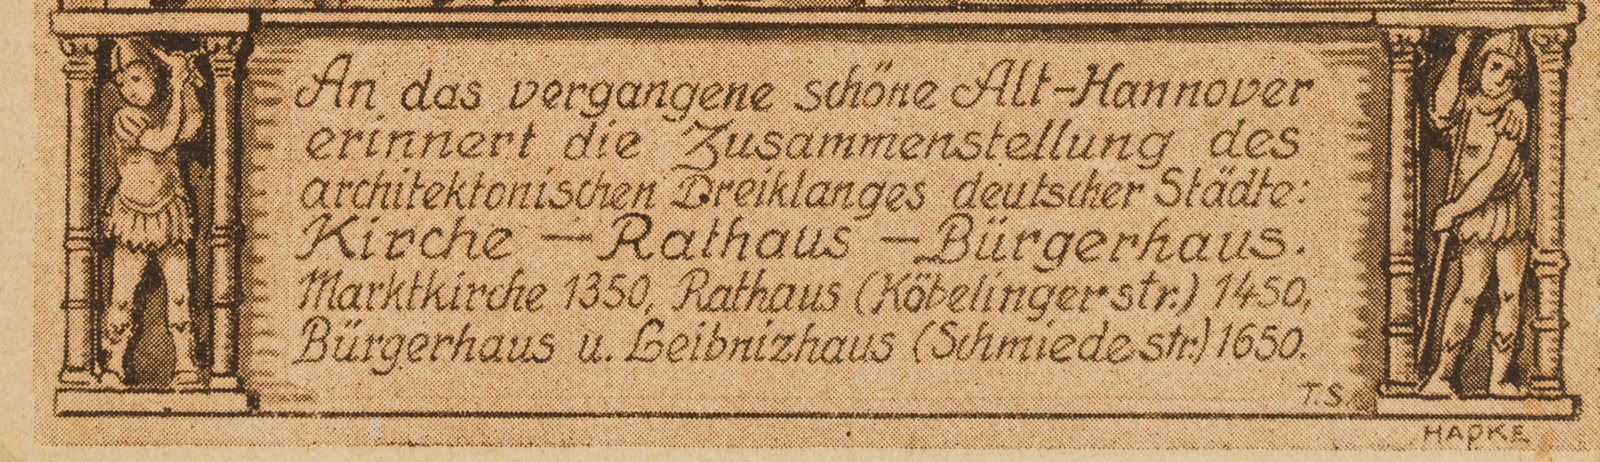 An das vergangene schöne Alt-Hannover
erinnert die Zusammenstellung des
architektonischen Dreiklanges deutscher Städte:
Kirche – Rathaus – Bürgerhaus.
Marktkirche 1350, Rathaus (Köbelingerstr.) 1450,
Bürgerhaus u. Leibnizhaus (Schmiedestr.) 1650.
T.S.
HAPKE